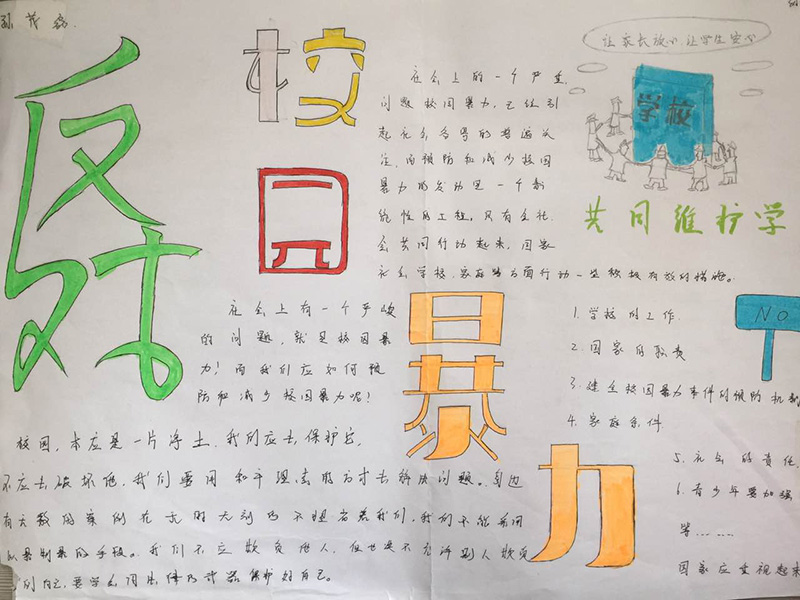 孙茂
反对
校园
暴力
让家长放心,让学生安心
学校
共同维护学
NO
在会上的一个严重
问题校园暴力,已经引
起社会各界的普遍关
注,而预防和减少校园
暴力的发动是一个系
统性的工程,只有全社
会共同行动起来,国家
社会学校、家庭四方面行动一些积极有效的措施。
在会上有一个严峻
的问题,就是校园暴
力!而我们应如何预
防和减少校园暴力呢!
校园,本应是一片净土,我们应去保护它,
不应去破坏他,我们要用和平理
去解决问题。身边
有无数的案例在无时无刻乃不
我们,我们不能采用
以暴制暴的手段。我们不应欺负他人,但也是不允许别人欺负
自己,要学会用法律
保护好自己。
1.学校的工作.
2.国家的职责
3.建立校园暴力事件的预防机制
4.家庭条件
5.社会的责任,
6.青少年要加强
等……
国家应重视起来